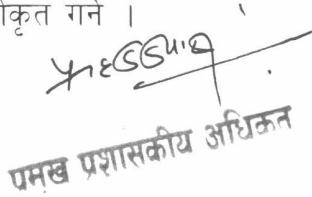 कृत गर्ने ।
प्रमुख प्रशासकीय अधिकृत